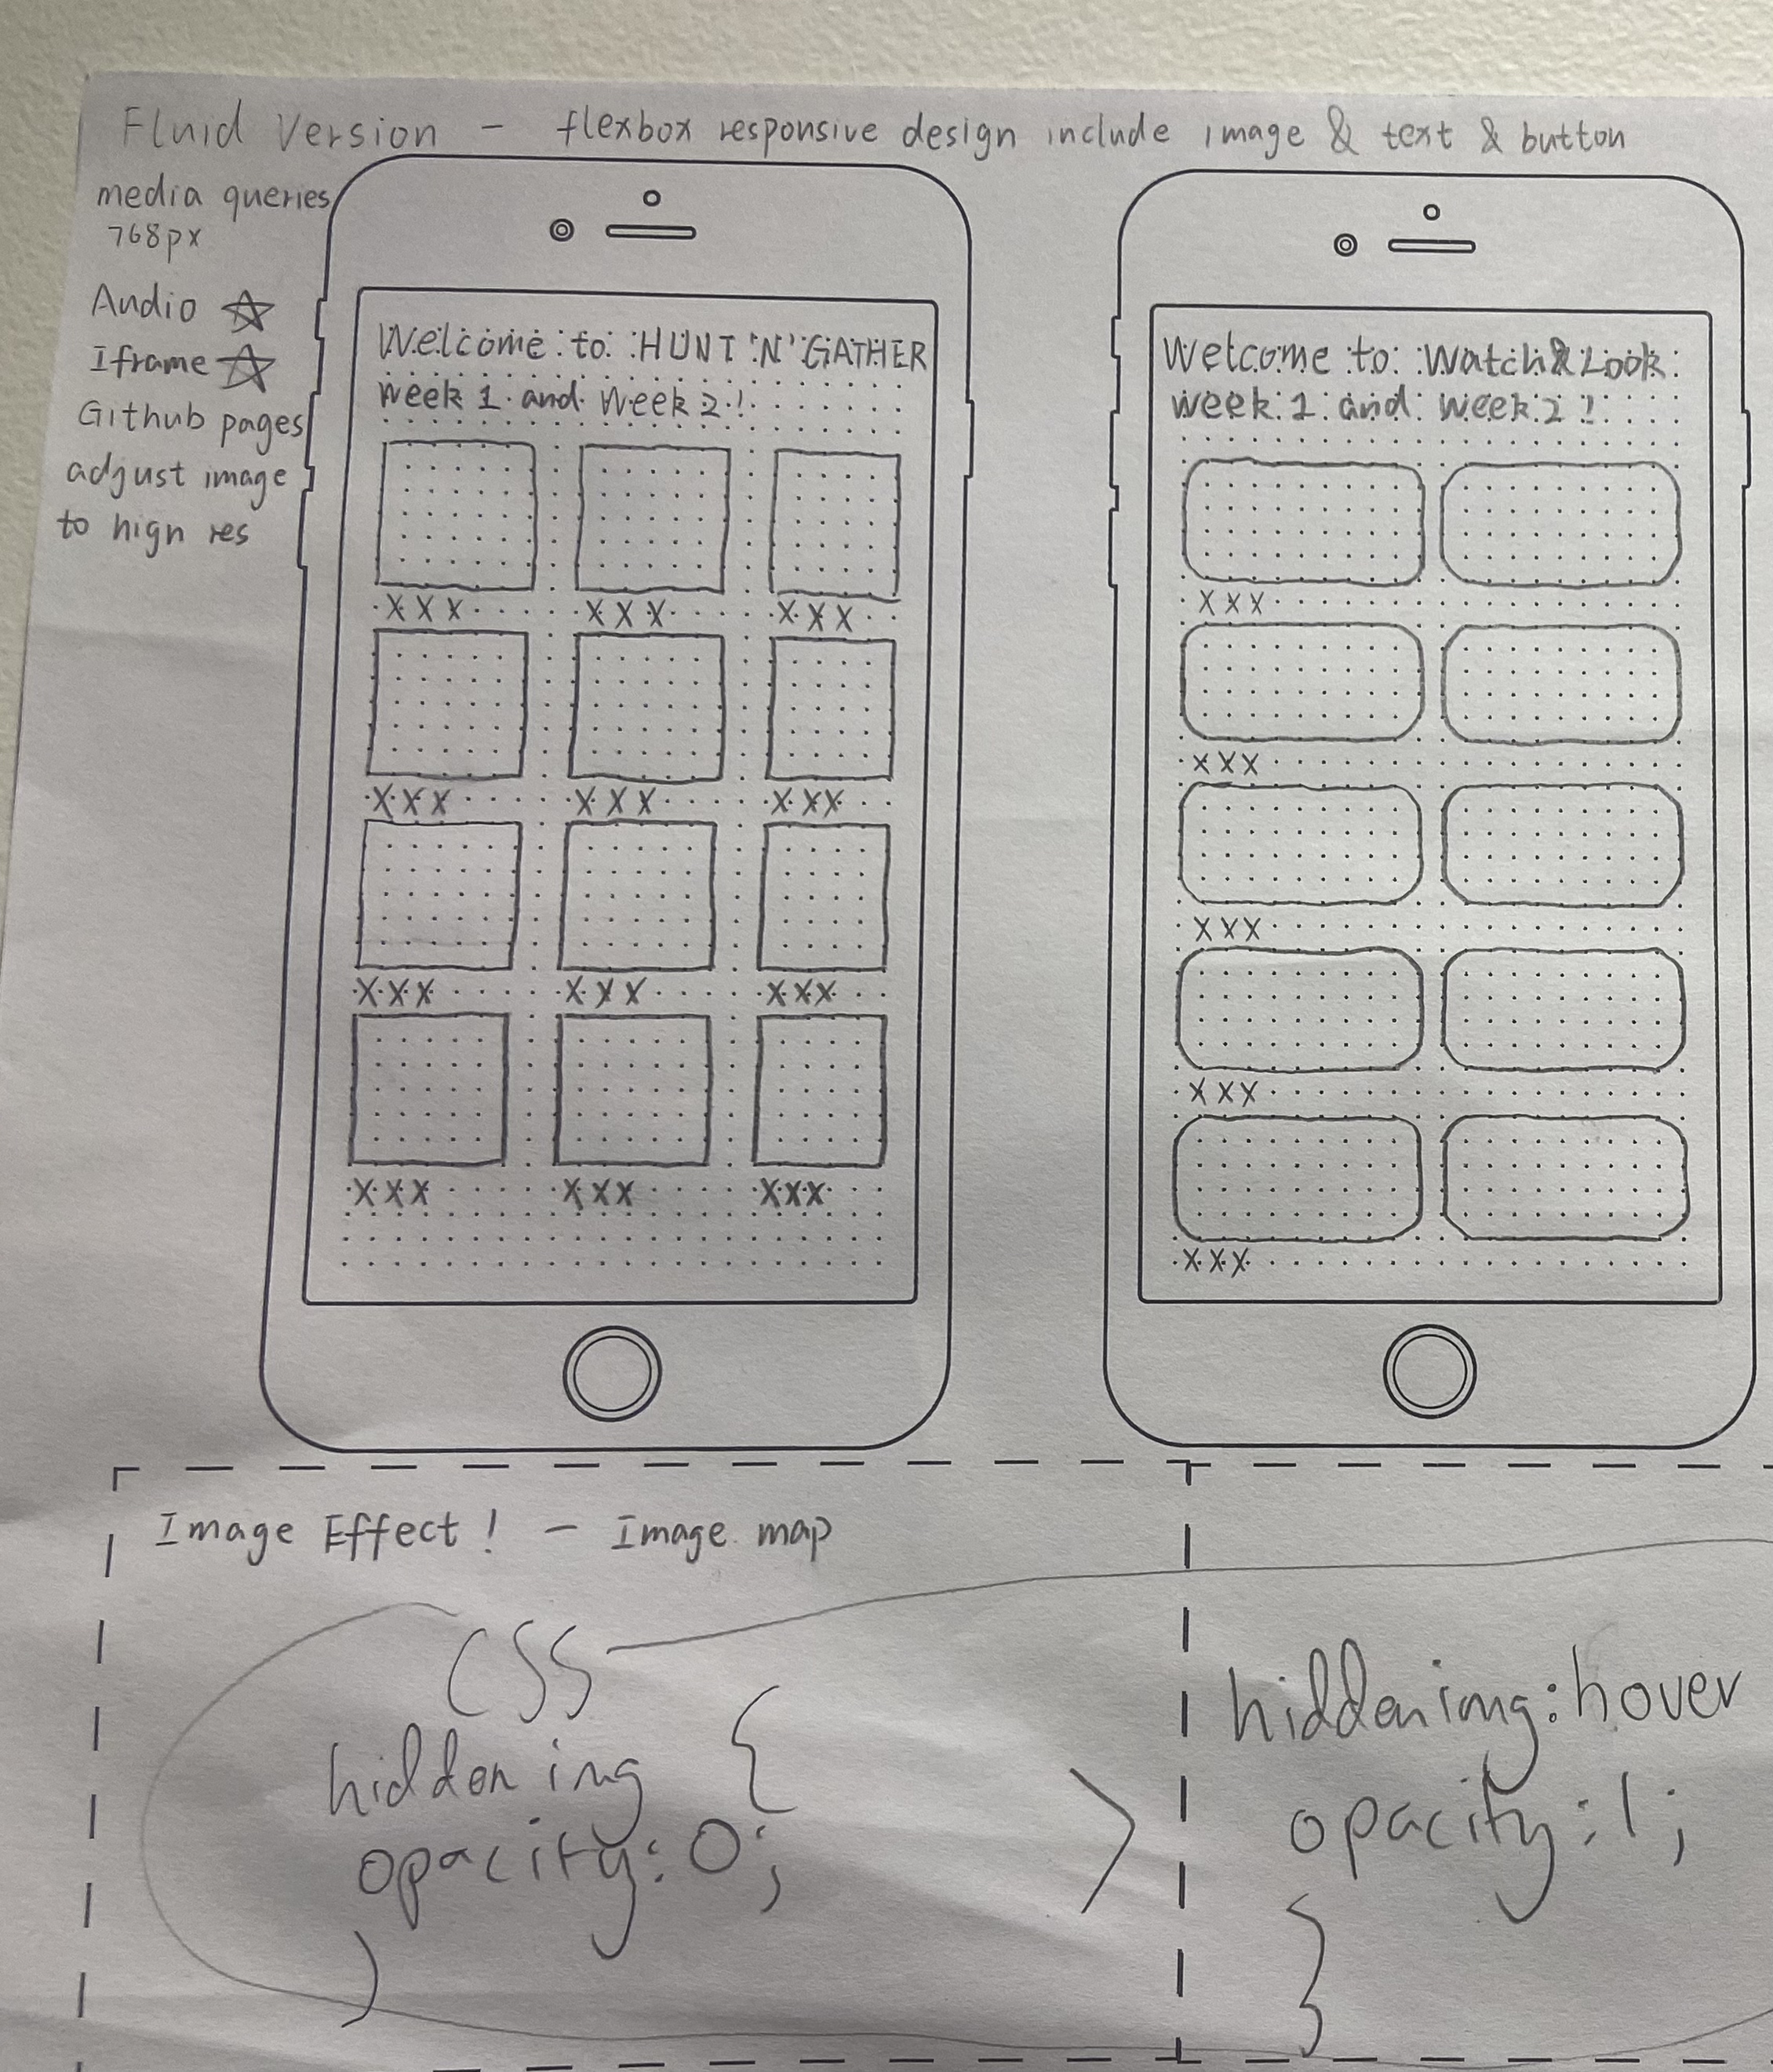 Fluid Version - flexbox responsive design include image & text & button
media queries
768px
Audio
Iframe
Github pages
adjust image
to hign res
Welcome to HUNT 'N' GATHER
week 1 and week 2!
XXX XXX XXX
XXX XXX XXX
XXX XXX XXX
XXX XXX XXX
Welcome to Watch & Look
week 1 and week 2!
XXX
XXX
XXX
XXX
XXX
Image Effect! - Image map
CSS
hidden img {
opacity: 0;
}
>
hidden img:hover
opacity: 1;
}